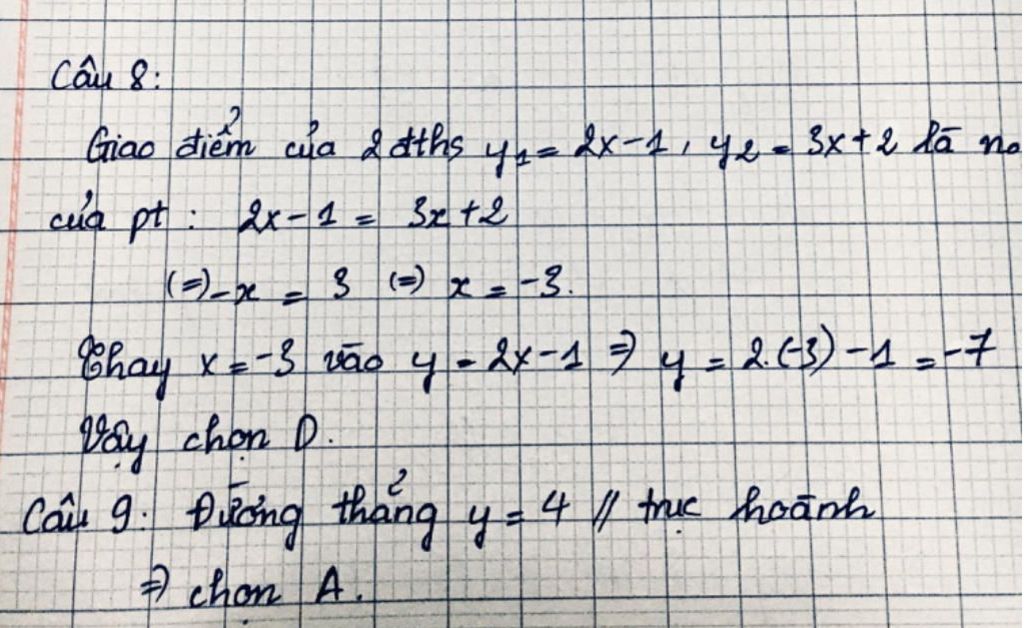 Câu 8:
Giao điểm của 2 đths y₁ = 2x - 1, y₂ = 3x + 2 là no
của pt : 2x - 1 = 3x + 2
(=) -x = 3 (=) x = -3.
Thay x = -3 vào y = 2x - 1 => y = 2.(-3) - 1 = -7
Vậy chọn D.
Câu 9: Đường thẳng y = 4 // trục hoành
=> chọn A.